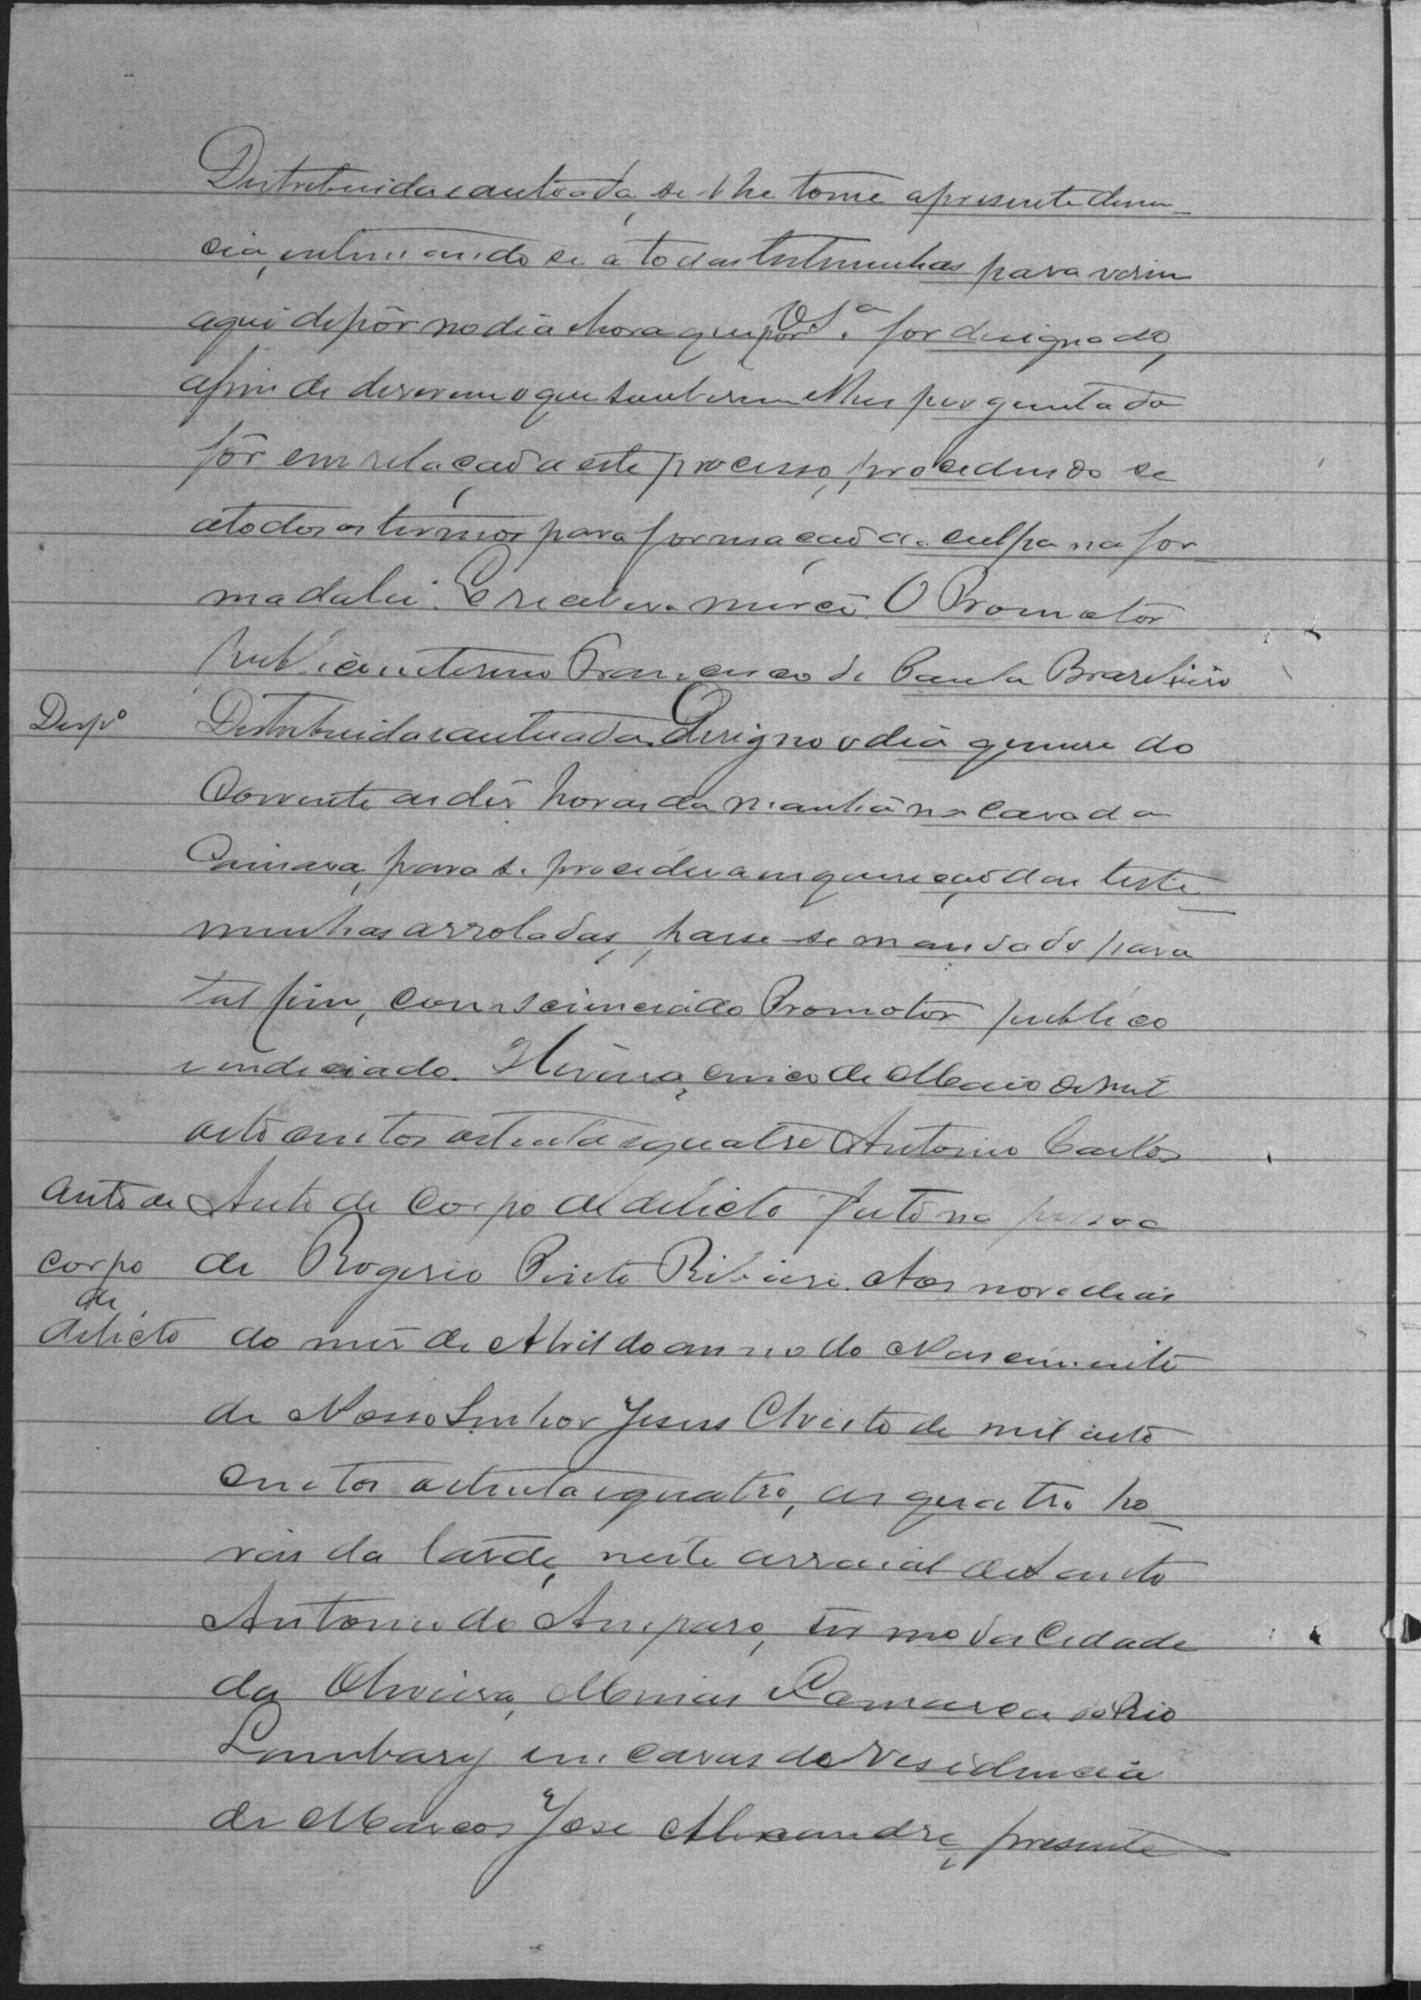 Distribuida e autoada, se lhe tome a presente denun-
cia, intimando se a todas testemunhas para virem
aqui depôr no dia e hora que por V. S.ª for designado,
afim de dizerem o que souberem e lhes perguntado
fôr em relação a este processo, procedendo se
a todos os termos para formação da culpa na for-
ma da lei. E receberá mercê. O Promotor
Publico interino Francisco de Paula Brazileiro
Desp.º Distribuida e autuada. Designo o dia quinse do
Corrente as dés horas da manhã na casa da
Camara, para se proceder a inquirição das teste-
munhas arroladas, passe-se mandado para
tal fim, com sciencia do Promotor publico
e indiciado. Oliveira, cinco de Maio de mil
oito centos oitenta e quatro Antonio Carlos
Auto de Auto de Corpo de delicto feito na pessoa
corpo de Rogerio Pinto Ribeiro. Aos nove dias
de
delicto do mês de Abril do anno do Nascimento
de Nosso Senhor Jesus Christo de mil oito
centos oitenta e quatro, as quatro ho-
ras da tarde, neste arraial de Santo
Antonio do Amparo, termo da Cidade
da Oliveira, Minas Comarca do Rio
Lambary em casas de residencia
de Marcos José Alexandre, presente